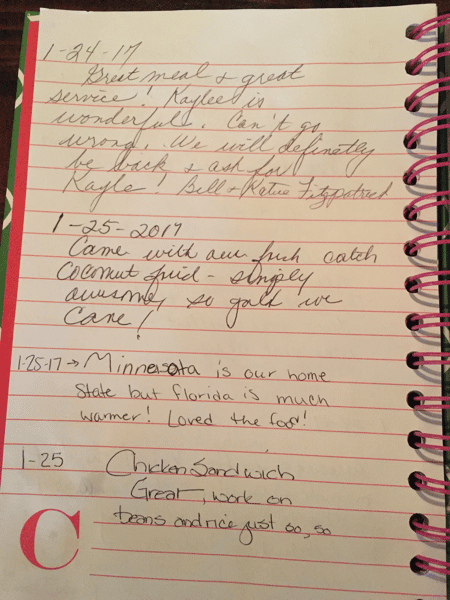 1-24-17
Great meal & great
service! Kaylee is
wonderful. Can't go
wrong. We will definetly
be back & ask for
Kayle! Bill & Katie Fitzpatrick
1-25-2017
Came with our fresh catch
Coconut fried - simply
awesome, so glad we
came!
1-25-17 → Minnesota is our home
State but Florida is much
warmer! Loved the food!
1-25 Chicken Sandwich
Great, work on
beans and rice just so, so
C